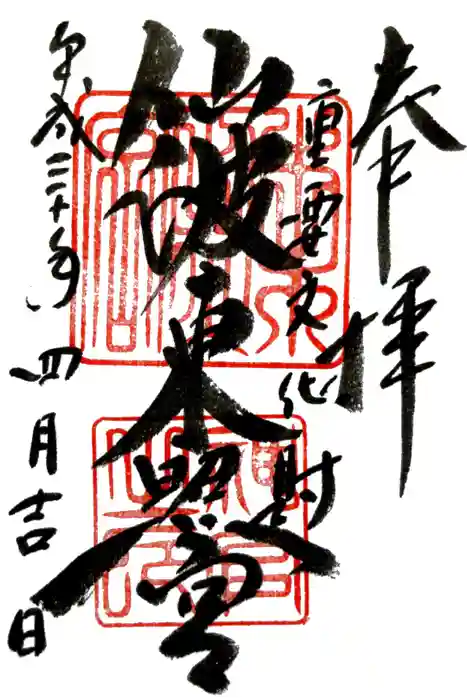 奉拝
重要文化財
仙波東照宮
平成三十年
四月吉日